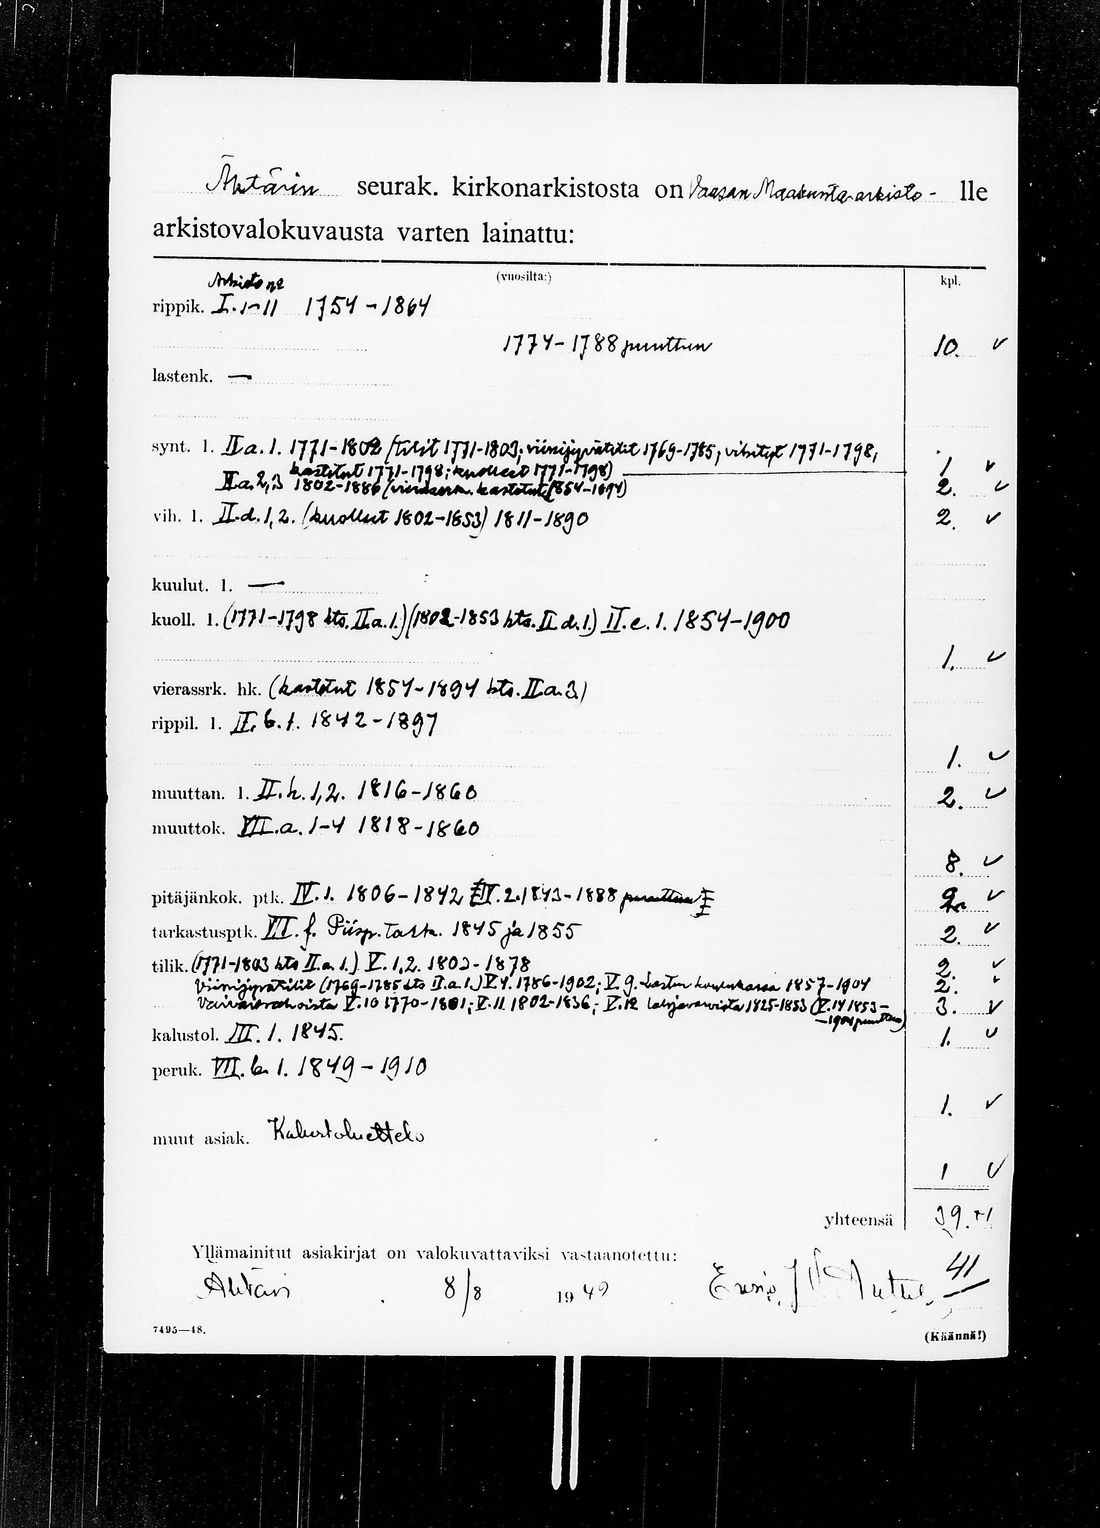 Ähtärin seurak. kirkonarkistosta on Vaasan Maakunta-arkisto - lle
arkistovalokuvausta varten lainattu:
(vuosilta:) kpl.
Arkisto n:o
rippik. I. 1-11 1754-1864
1774-1788 puuttuu 10. ✓
lastenk. —
synt. l. II a. 1. 1771-1802 (tilit 1771-1803; viinijyvätilit 1769-1785; vihityt 1771-1798,
kastetut 1771-1798; kuolleet 1771-1798) 1 ✓
II a. 2,3 1802-1886 (vierassrk. kastetut 1854-1894) 2. ✓
vih. l. II.d. 1,2. (kuolleet 1802-1853) 1811-1890 2. ✓
kuulut. l. —
kuoll. l. (1771-1798 kts. II a. 1.) (1802-1853 kts. II d. 1.) II. e. 1. 1854-1900
1. ✓
vierassrk. hk. (kastetut 1854-1894 kts. II a. 3)
rippil. l. II. b. 1. 1842-1897
1. ✓
muuttan. l. II. h. 1,2. 1816-1860 2. ✓
muuttok. VII. a. 1-4 1818-1860
8. ✓
pitäjänkok. ptk. IV. 1. 1806-1842 IV. 2. 1843-1888 puuttuu 2. ✓
tarkastusptk. VII. f. Piisp. tark. 1845 ja 1855 2. ✓
tilik. (1771-1803 kts II.a. 1.) V. 1,2. 1803-1878 2. ✓
Viinijyvätilit (1769-1785 kts II. a. 1.) V. 4. 1786-1902; V. 9. Lasten koulukassa 1857-1904 2. ✓
Vaivaisrahoista V. 10 1770-1801; V. 11 1802-1836; V. 12 Lahjavaroista 1825-1853 (V. 14 1853- 3. ✓
-1904 puuttuu)
kalustol. III. 1. 1845. 1. ✓
peruk. VII. b. 1. 1849-1910
1. ✓
muut asiak. Kalustoluettelo
1 ✓
yhteensä 39. +1
Yllämainitut asiakirjat on valokuvattaviksi vastaanotettu: 41
Ähtäri 8/8 1949
7495—48. (Käännä!)